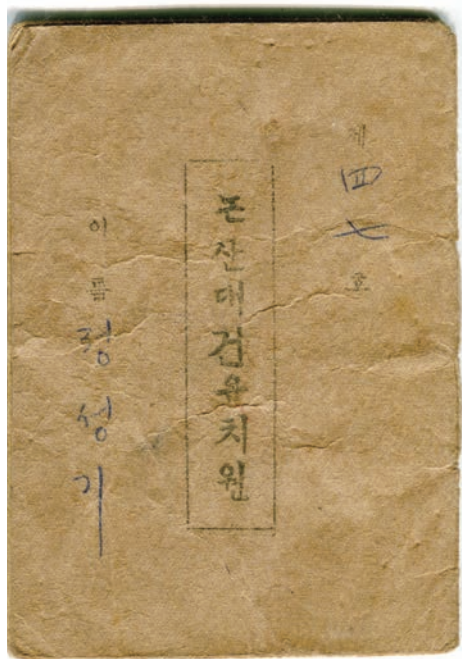 제四七호
논산대건유치원
이름 정성기